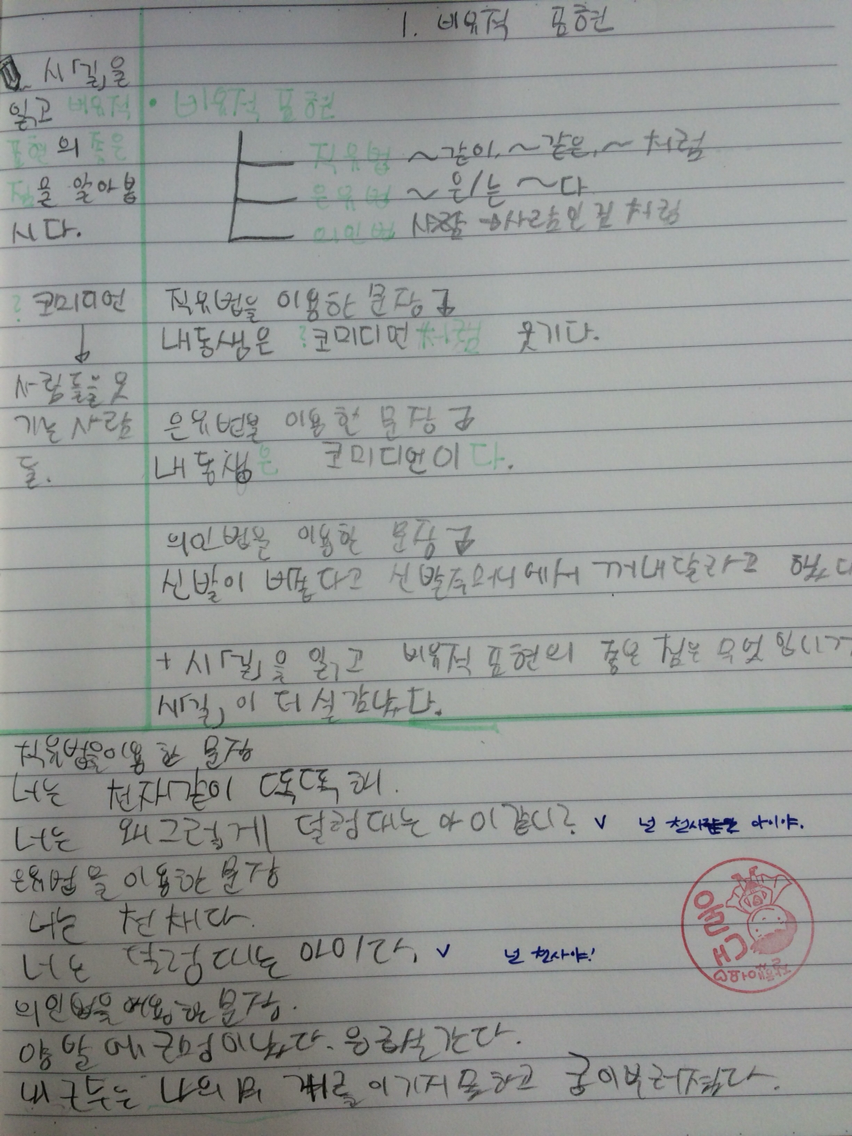 1. 비유적 표현
시「길」을
읽고 비유적
표현의 좋은
점을 알아봅
시다.
• 비유적 표현
직유법 ~같이, ~같은, ~처럼
은유법 ~은/는 ~다
의인법 사람 → 사람인 것처럼
? 코미디언
↓
사람들을 웃
기는 사람
들.
직유법을 이용한 문장
내 동생은 ?코미디언처럼 웃기다.
은유법을 이용한 문장
내 동생은 코미디언이다.
의인법을 이용한 문장
신발이 비좁다고 신발주머니에서 꺼내달라고 했다
+ 시「길」을 읽고 비유적 표현의 좋은 점은 무엇입니까
시「길」이 더 실감난다.
직유법을이용 한 문장
너는 천재같이 똑똑해.
너는 왜그렇게 덜렁대는 아이같니? v 넌 천사같은 아이야.
은유법을 이용한 문장
너는 천재다.
너는 덜렁대는 아이다. v 넌 천사야!
의인법을 이용한 문장.
양말에 구멍이났다.
내 는 나의 를 이기지 못하고 부러졌다.